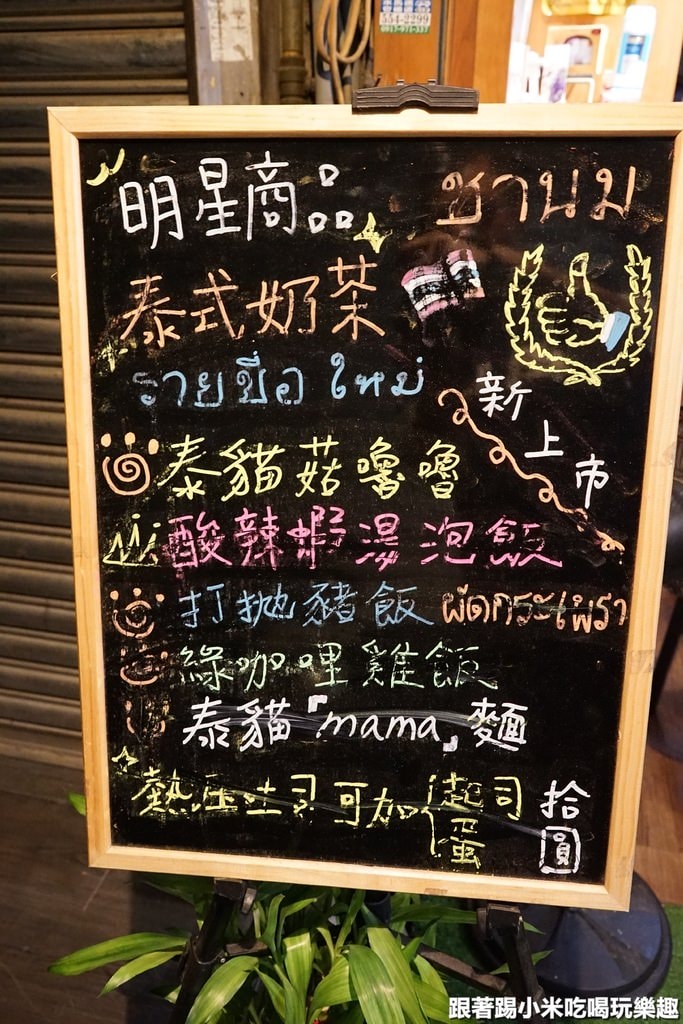 554-2299
0917-971-337
明星商品 ชานม
泰式奶茶
รายชื่อ ใหม่
新上市
泰貓菇嚕嚕
酸辣蝦湯泡飯
打拋豬飯 ผัดกระเพรา
綠咖哩雞飯
泰貓「mama」麵
熱压吐司可加{起司 拾圓
蛋
跟著踢小米吃喝玩樂趣